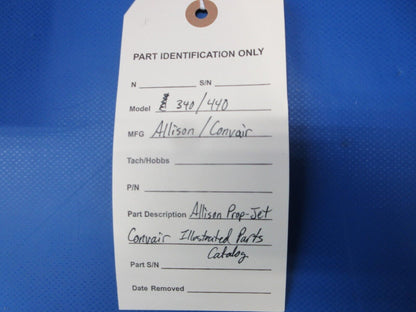 PART IDENTIFICATION ONLY
N S/N
Model 340/440
MFG Allison/Convair
Tach/Hobbs
P/N
Part Description Allison Prop-Jet
Convair Illustrated Parts
Catalog
Part S/N
Date Removed